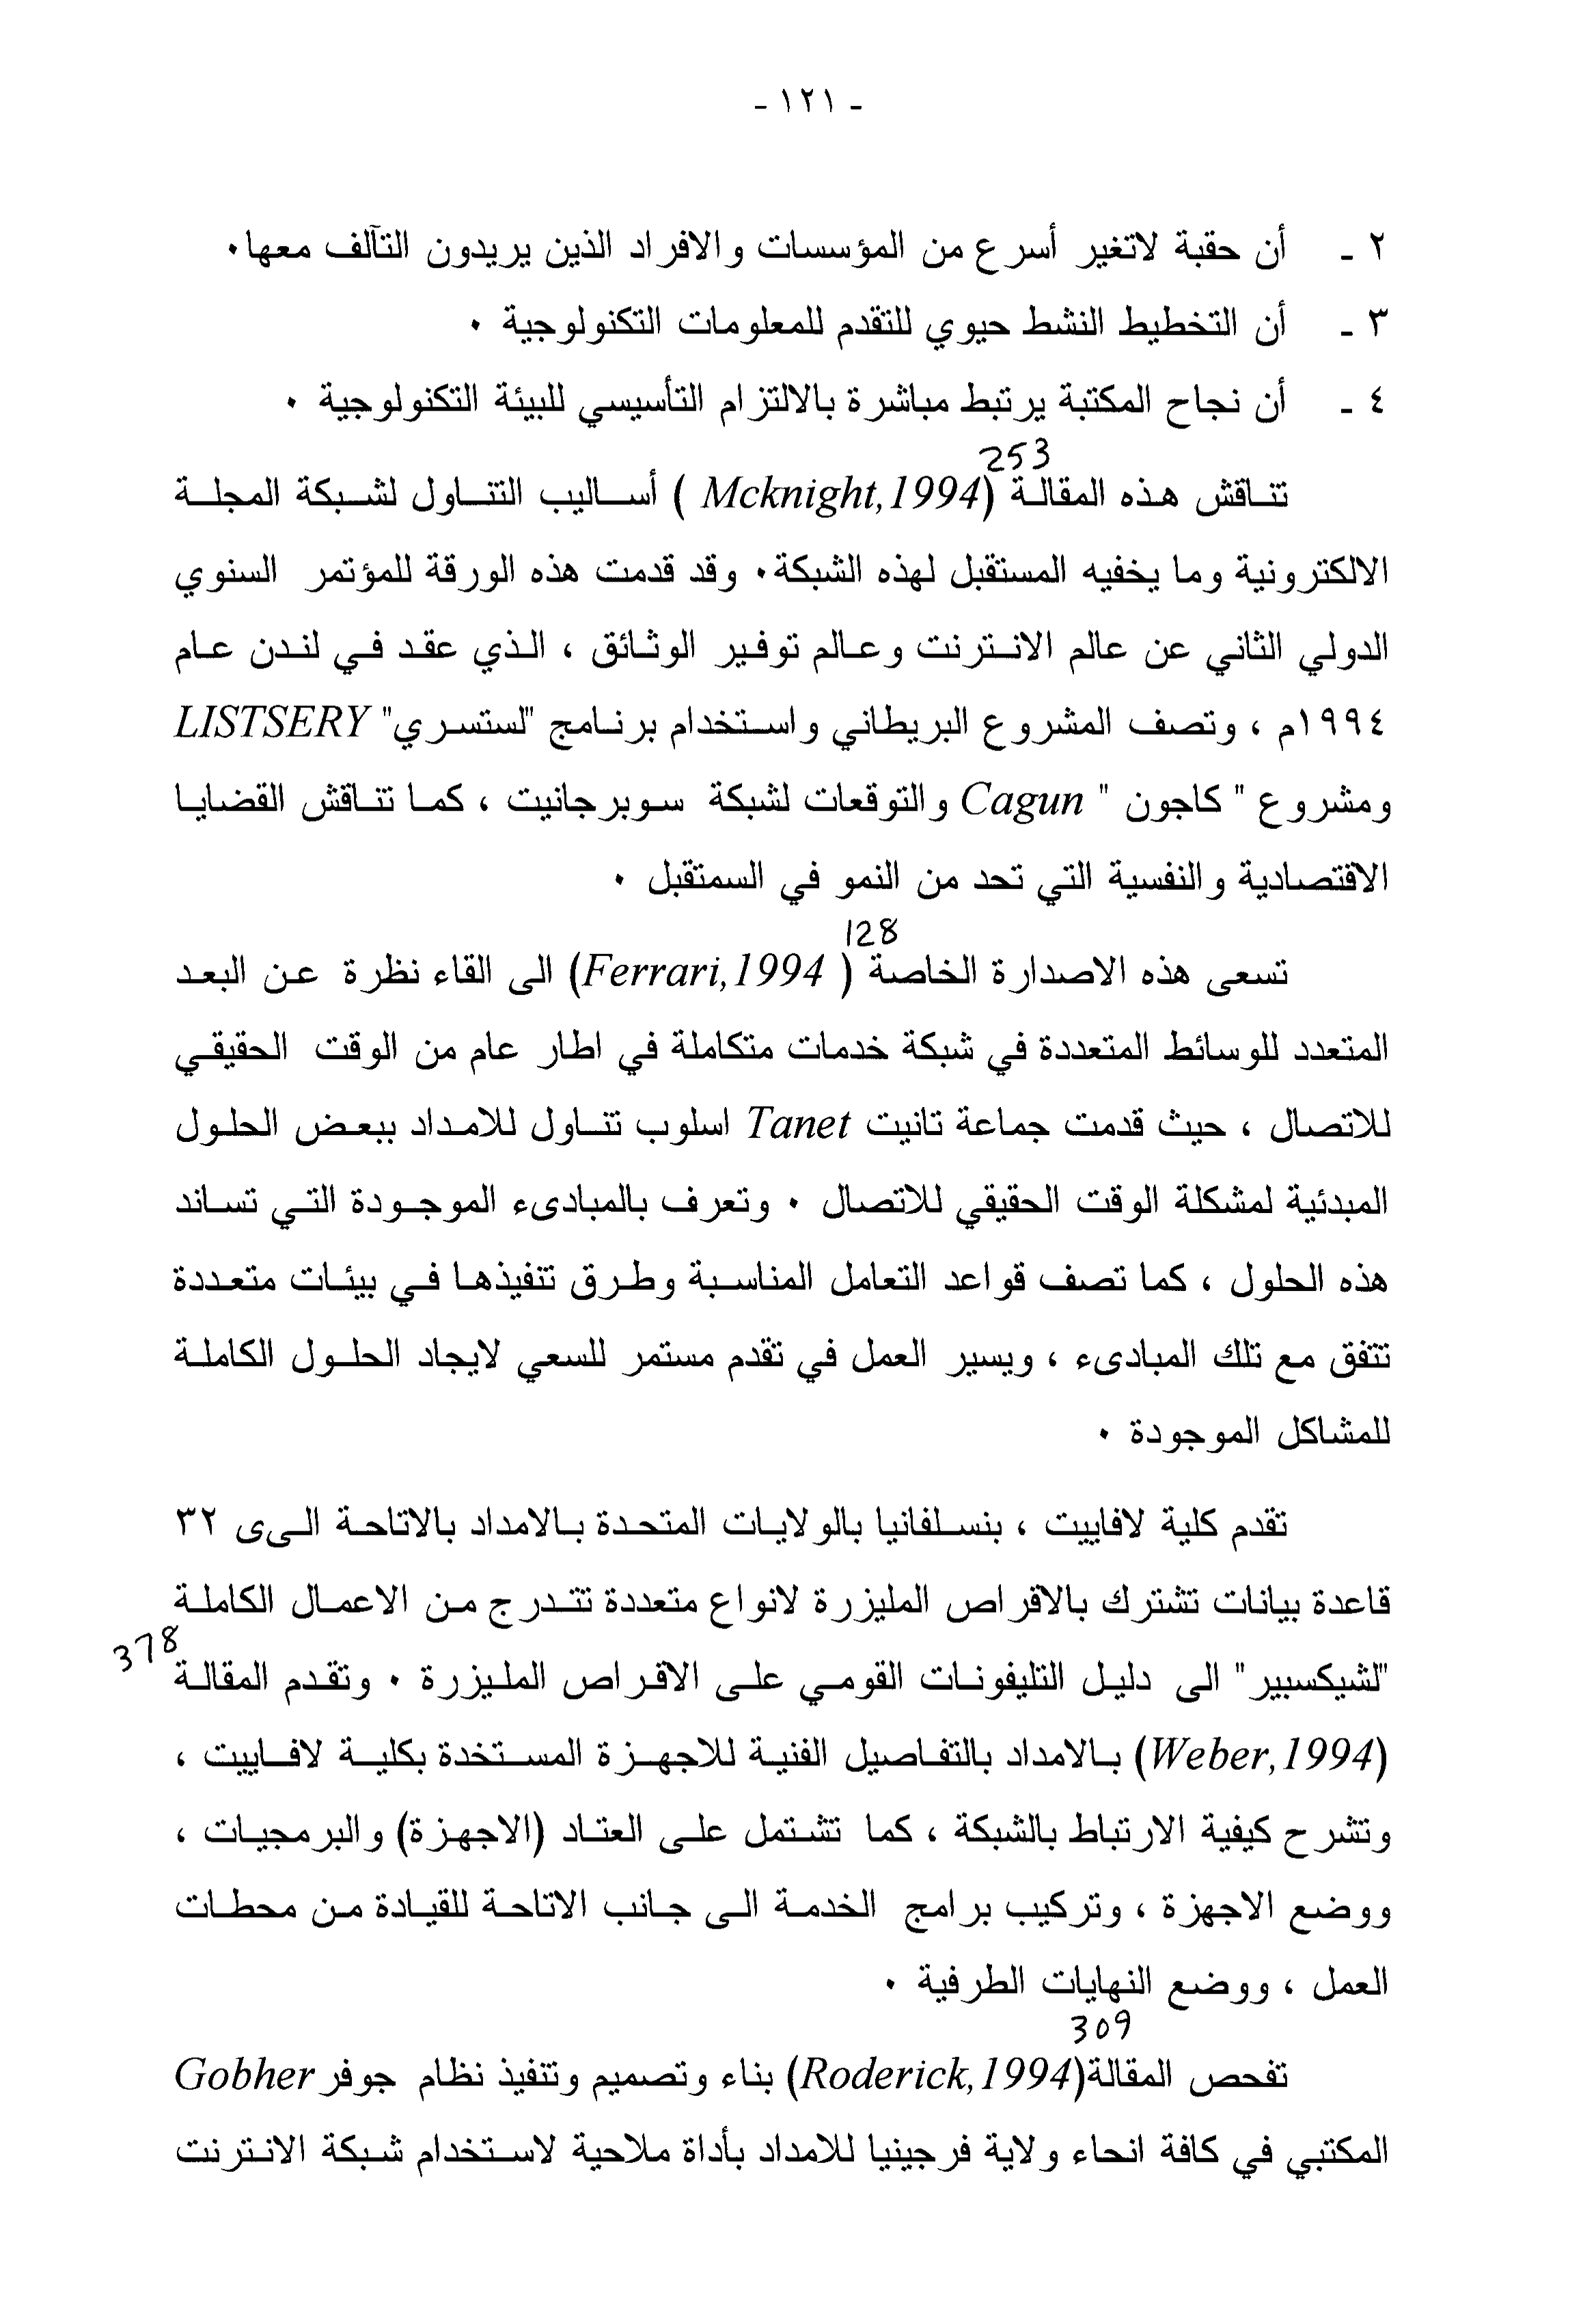 - ١٢١ -
٢ - أن حقبة لاتغير أسرع من المؤسسات والافراد الذين يريدون التآلف معها٠
٣ - أن التخطيط النشط حيوي للتقدم للمعلومات التكنولوجية ٠
٤ - أن نجاح المكتبة يرتبط مباشرة بالالتزام التأسيسي للبيئة التكنولوجية ٠
253
تناقش هذه المقالة (Mcknight,1994 ) أساليب التناول لشبكة المجلة
الالكترونية وما يخفيه المستقبل لهذه الشبكة٠ وقد قدمت هذه الورقة للمؤتمر السنوي
الدولي الثاني عن عالم الانترنت وعالم توفير الوثائق ، الذي عقد في لندن عام
١٩٩٤م ، وتصف المشروع البريطاني واستخدام برنامج "لستسري" LISTSERY
ومشروع " كاجون " Cagun والتوقعات لشبكة سوبرجانيت ، كما تناقش القضايا
الاقتصادية والنفسية التي تحد من النمو في السمتقبل ٠
128
تسعى هذه الاصدارة الخاصة ( Ferrari,1994) الى القاء نظرة عن البعد
المتعدد للوسائط المتعددة في شبكة خدمات متكاملة في اطار عام من الوقت الحقيقي
للاتصال ، حيث قدمت جماعة تانيت Tanet اسلوب تناول للامداد ببعض الحلول
المبدئية لمشكلة الوقت الحقيقي للاتصال ٠ وتعرف بالمبادىء الموجودة التي تساند
هذه الحلول ، كما تصف قواعد التعامل المناسبة وطرق تنفيذها في بيئات متعددة
تتفق مع تلك المبادىء ، ويسير العمل في تقدم مستمر للسعي لايجاد الحلول الكاملة
للمشاكل الموجودة ٠
تقدم كلية لافاييت ، بنسلفانيا بالولايات المتحدة بالامداد بالاتاحة الىى ٣٢
قاعدة بيانات تشترك بالاقراص المليزرة لانواع متعددة تتدرج من الاعمال الكاملة
"لشيكسبير" الى دليل التليفونات القومي على الاقراص المليزرة ٠ وتقدم المقالة 378
(Weber,1994) بالامداد بالتفاصيل الفنية للاجهزة المستخدة بكلية لافاييت ،
وتشرح كيفية الارتباط بالشبكة ، كما تشتمل على العتاد (الاجهزة) والبرمجيات ،
ووضع الاجهزة ، وتركيب برامج الخدمة الى جانب الاتاحة للقيادة من محطات
العمل ، ووضع النهايات الطرفية ٠
309
تفحص المقالة(Roderick,1994) بناء وتصميم وتنفيذ نظام جوفر Gobher
المكتبي في كافة انحاء ولاية فرجينيا للامداد بأداة ملاحية لاستخدام شبكة الانترنت